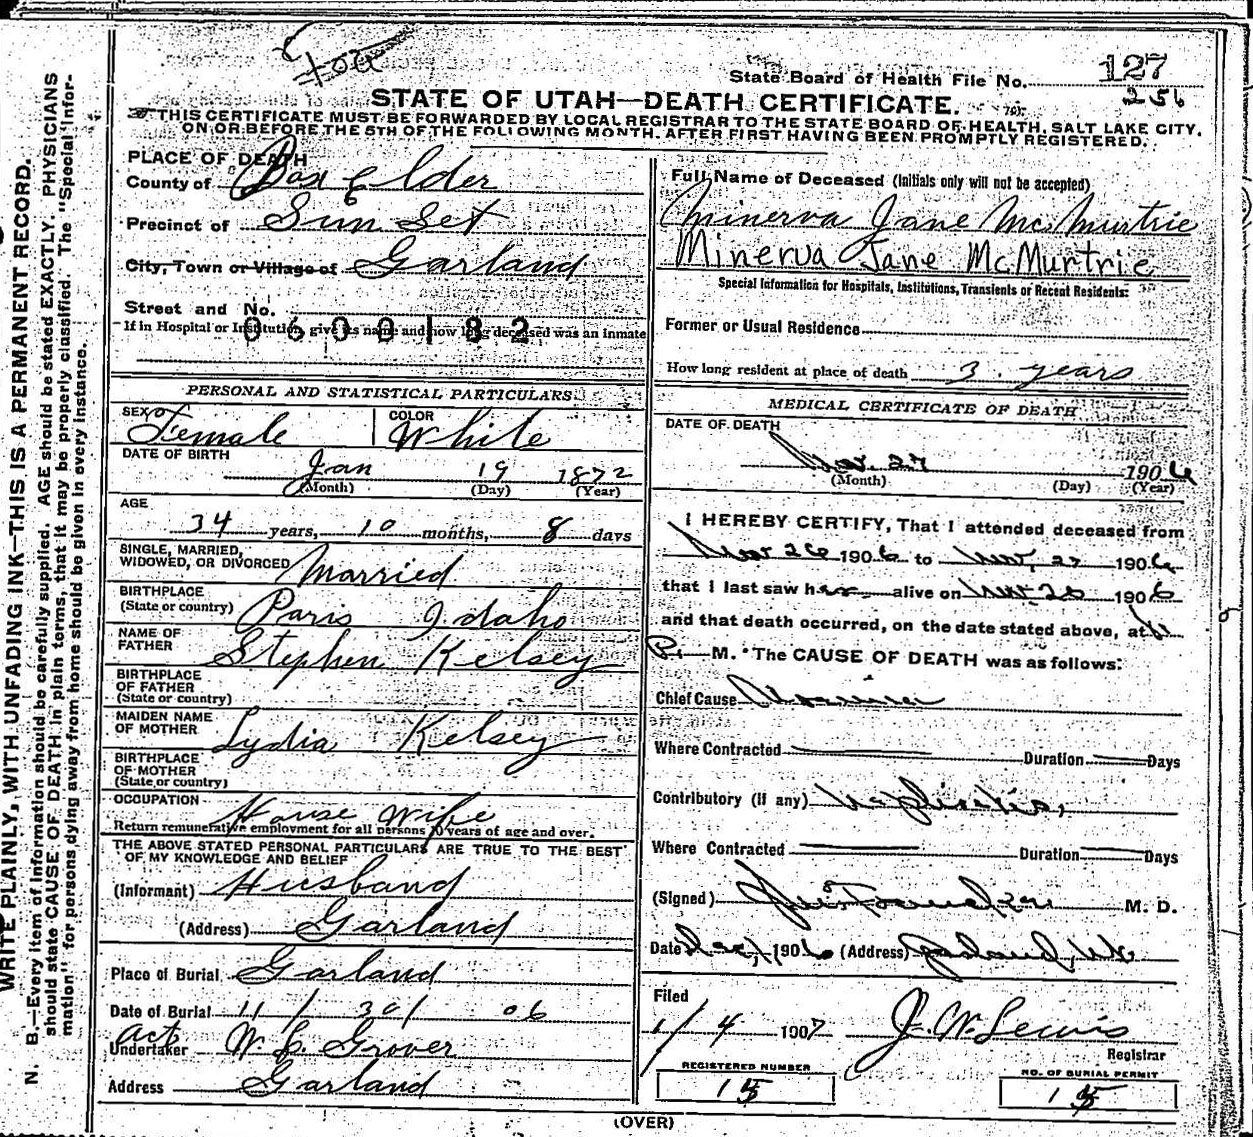 WRITE PLAINLY, WITH UNFADING INK—THIS IS A PERMANENT RECORD.
N. B.—Every item of information should be carefully supplied. AGE should be stated EXACTLY. PHYSICIANS
should state CAUSE OF DEATH in plain terms, that it may be properly classified. The "Special Infor-
mation" for persons dying away from home should be given in every instance.
State Board of Health File No. 127
256
STATE OF UTAH—DEATH CERTIFICATE.
THIS CERTIFICATE MUST BE FORWARDED BY LOCAL REGISTRAR TO THE STATE BOARD OF HEALTH, SALT LAKE CITY,
ON OR BEFORE THE 5TH OF THE FOLLOWING MONTH, AFTER FIRST HAVING BEEN PROMPTLY REGISTERED.
PLACE OF DEATH
County of Box Elder
Precinct of Sun Set
City, Town or Village of Garland
Street and No.
If in Hospital or Institution, give its name and how long deceased was an inmate
0600182
PERSONAL AND STATISTICAL PARTICULARS
SEX Female COLOR White
DATE OF BIRTH
Jan 19 1872
(Month) (Day) (Year)
AGE
34 years, 10 months, 8 days
SINGLE, MARRIED,
WIDOWED, OR DIVORCED Married
BIRTHPLACE
(State or country) Paris Idaho
NAME OF
FATHER Stephen Kelsey
BIRTHPLACE
OF FATHER
(State or country)
MAIDEN NAME
OF MOTHER Lydia Kelsey
BIRTHPLACE
OF MOTHER
(State or country)
OCCUPATION House Wife
Return remunerative employment for all persons 10 years of age and over.
THE ABOVE STATED PERSONAL PARTICULARS ARE TRUE TO THE BEST
OF MY KNOWLEDGE AND BELIEF
(Informant) Husband
(Address) Garland
Place of Burial Garland
Date of Burial 11 / 30 / 06
act
Undertaker W. L. Grover
Address Garland
Full Name of Deceased (Initials only will not be accepted)
Minerva Jane McMurtrie
Minerva Jane McMurtrie
Special Information for Hospitals, Institutions, Transients or Recent Residents:
Former or Usual Residence
How long resident at place of death 3 years
MEDICAL CERTIFICATE OF DEATH
DATE OF DEATH
Nov. 27 1906
(Month) (Day) (Year)
I HEREBY CERTIFY, That I attended deceased from
Nov 26 1906 to Nov, 27 1906
that I last saw her alive on Nov. 1906
and that death occurred, on the date stated above, at
P. M. The CAUSE OF DEATH was as follows:
Chief Cause
Where Contracted Duration Days
Contributory (if any)
Where Contracted Duration Days
(Signed) M. D.
Date Dec 1 1906 (Address) Garland, Ut
Filed
1/4 1907 J. W. Lewis
Registrar
REGISTERED NUMBER
15
NO. OF BURIAL PERMIT
15
(OVER)